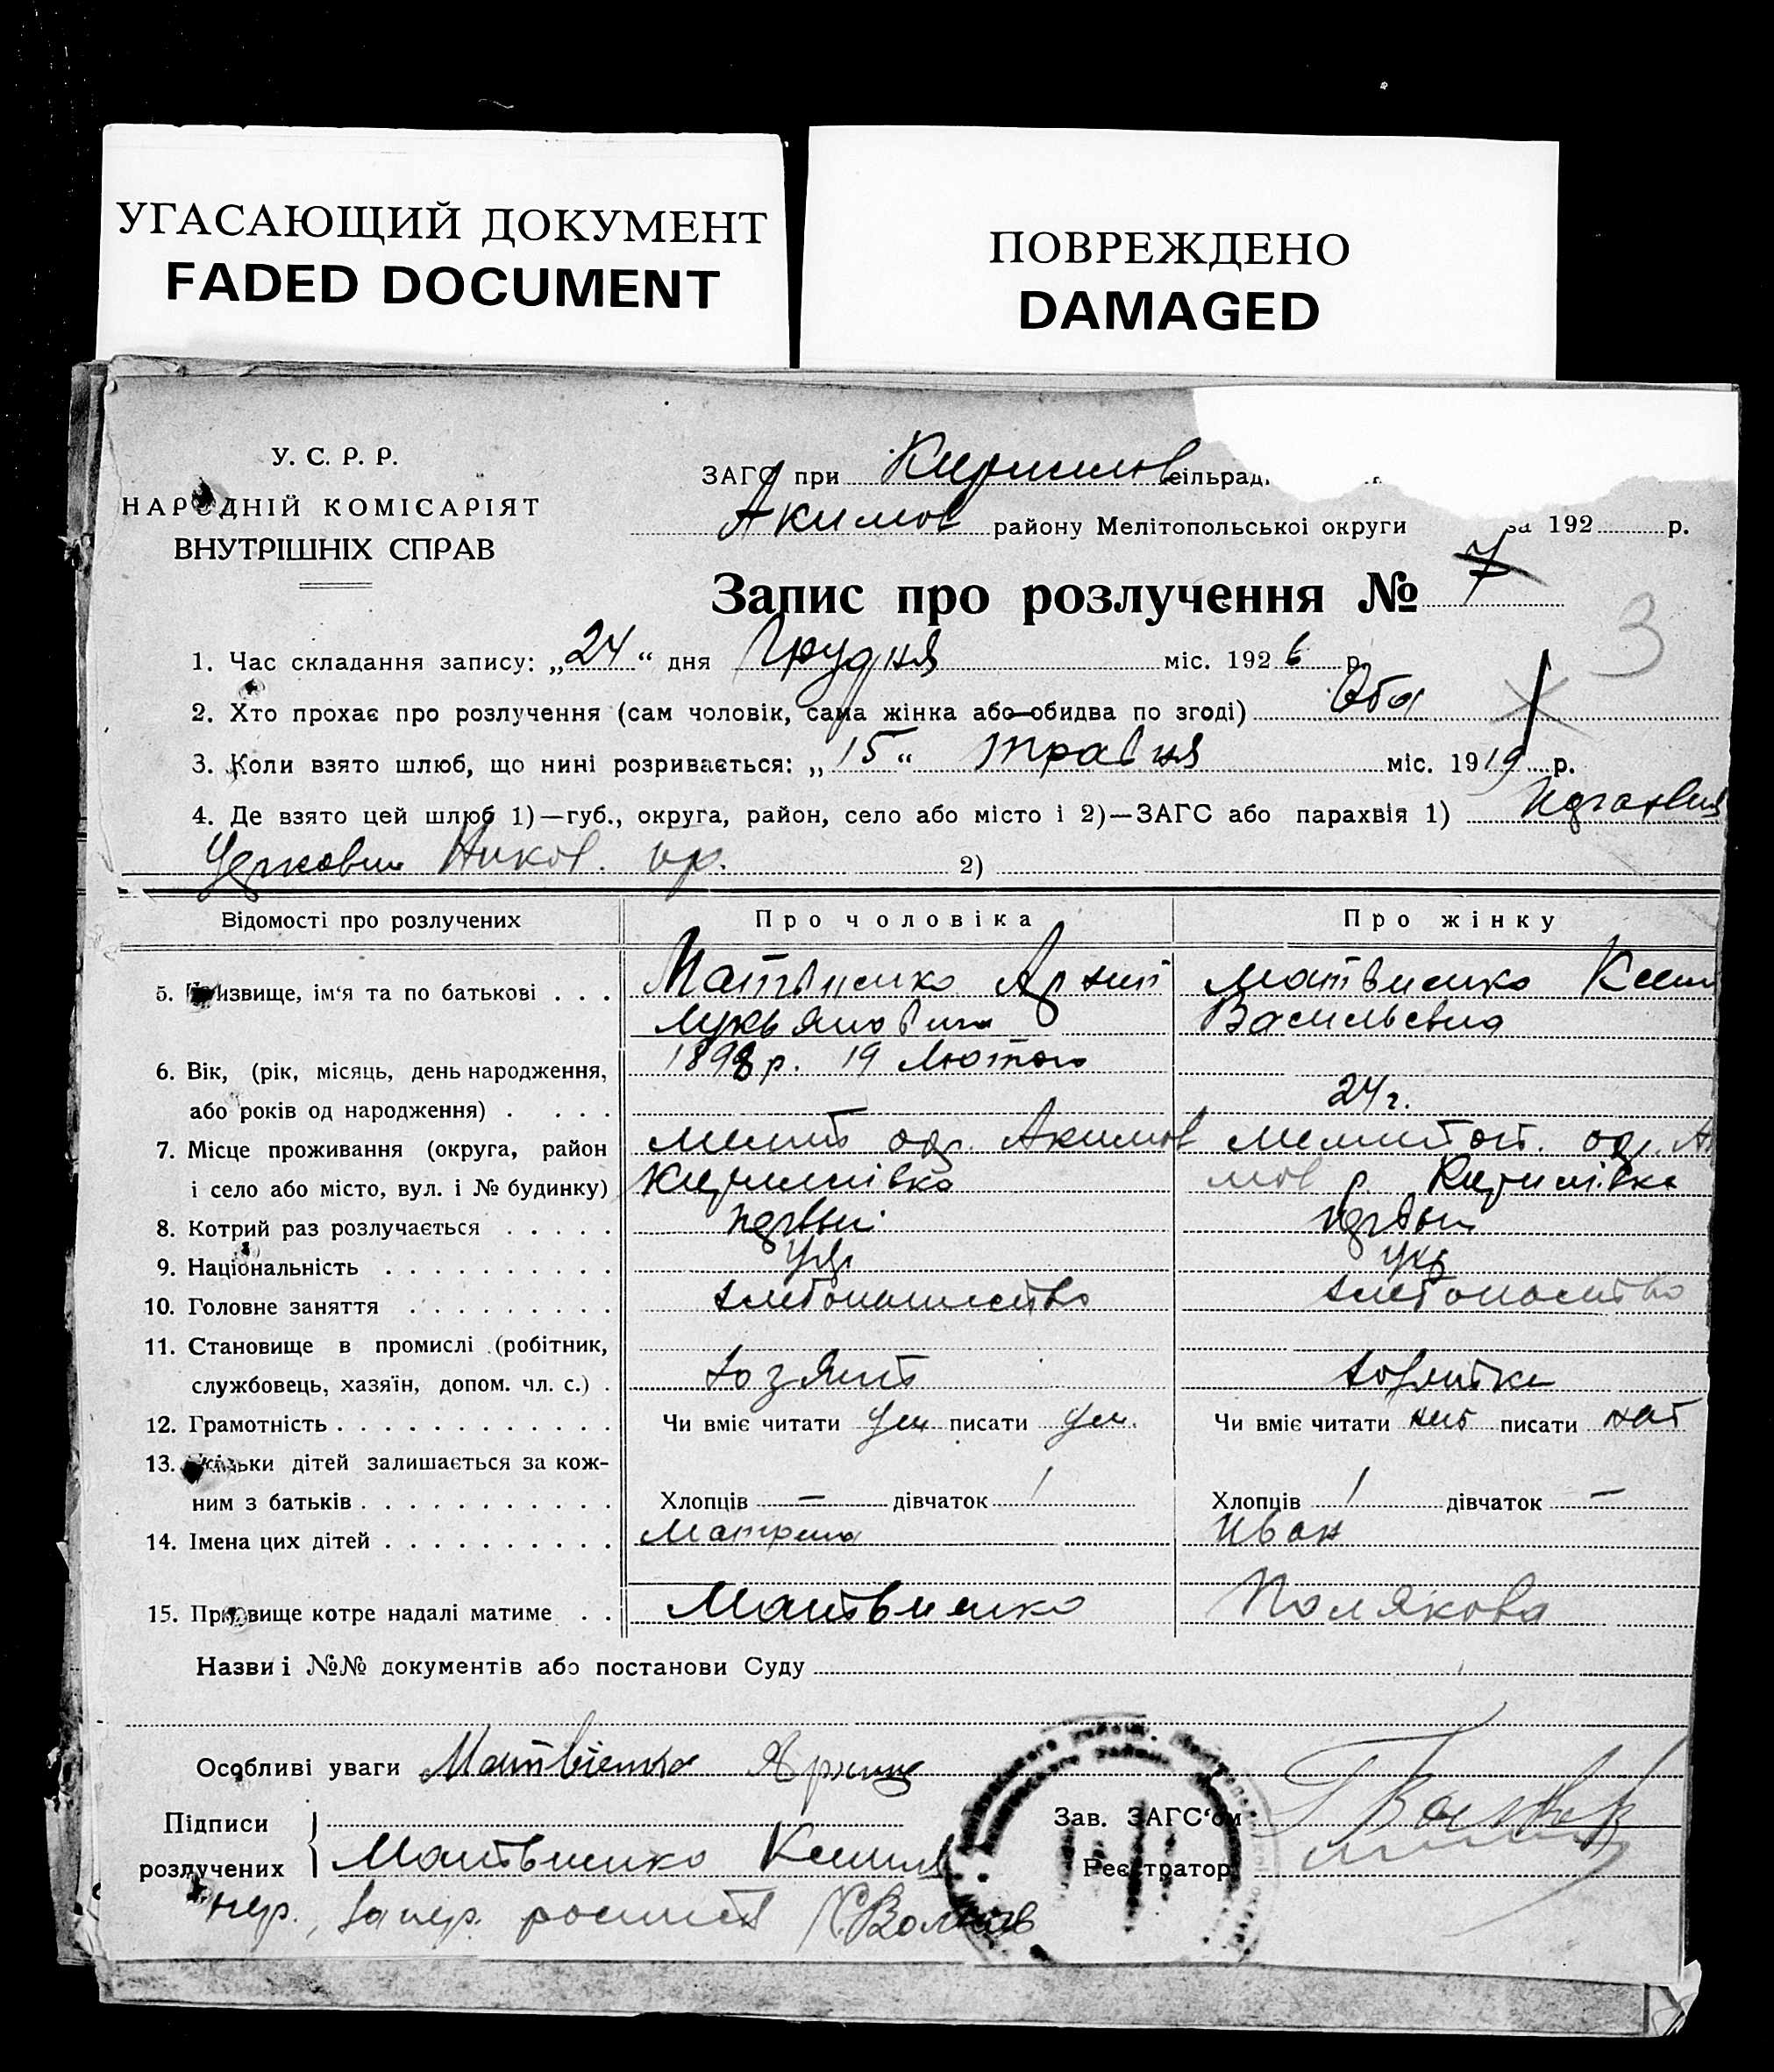 УГАСАЮЩИЙ ДОКУМЕНТ
FADED DOCUMENT
ПОВРЕЖДЕНО
DAMAGED
У. С. Р. Р.
НАРОДНІЙ КОМІСАРІЯТ
ВНУТРІШНІХ СПРАВ
ЗАГС при Кирилов сільрад
Акимов району Мелітопольської округи за 192 р.
Запис про розлучення № 7
3
1. Час складання запису: „24“ дня Грудня міс. 1926 р.
2. Хто прохає про розлучення (сам чоловік, сама жінка або обидва по згоді) Оба
3. Коли взято шлюб, що нині розривається: „15“ травня міс. 1919 р.
4. Де взято цей шлюб 1)—губ., округа, район, село або місто і 2)—ЗАГС або парахвія 1)
2)
Відомості про розлучених Про чоловіка Про жінку
5. Призвище, ім'я та по батькові . . . Матвиенко Архип Матвиенко
Лукьянович Васильевна
6. Вік, (рік, місяць, день народження, 1898 р. 19 Лютого
або років од народження) . . . . 24 г.
7. Місце проживання (округа, район Мелит окр. Акимов Мелитоп. окр. А
і село або місто, вул. і № будинку) Кирилівка мов р. Кирилівка
8. Котрий раз розлучається . . . . . первый первый
9. Національність . . . . . . . . . . укр укр
10. Головне заняття . . . . . . . . . хлебопашество хлебопашество
11. Становище в промислі (робітник,
службовець, хазяїн, допом. чл. с.) . хозяин хозяйка
12. Грамотність . . . . . . . . . . . . Чи вміє читати ум писати ум. Чи вміє читати нет писати нет
13. Скільки дітей залишається за кож-
ним з батьків . . . . . . . . . . . Хлопців — дівчаток 1 Хлопців 1 дівчаток —
14. Імена цих дітей . . . . . . . . . . Матрена Иван
15. Призвище котре надалі матиме . . Матвиенко Полякова
Назви і №№ документів або постанови Суду
Особливі уваги Матвіенко Архип
Підписи Зав. ЗАГС'ом
розлучених Матвиенко Реєстратор